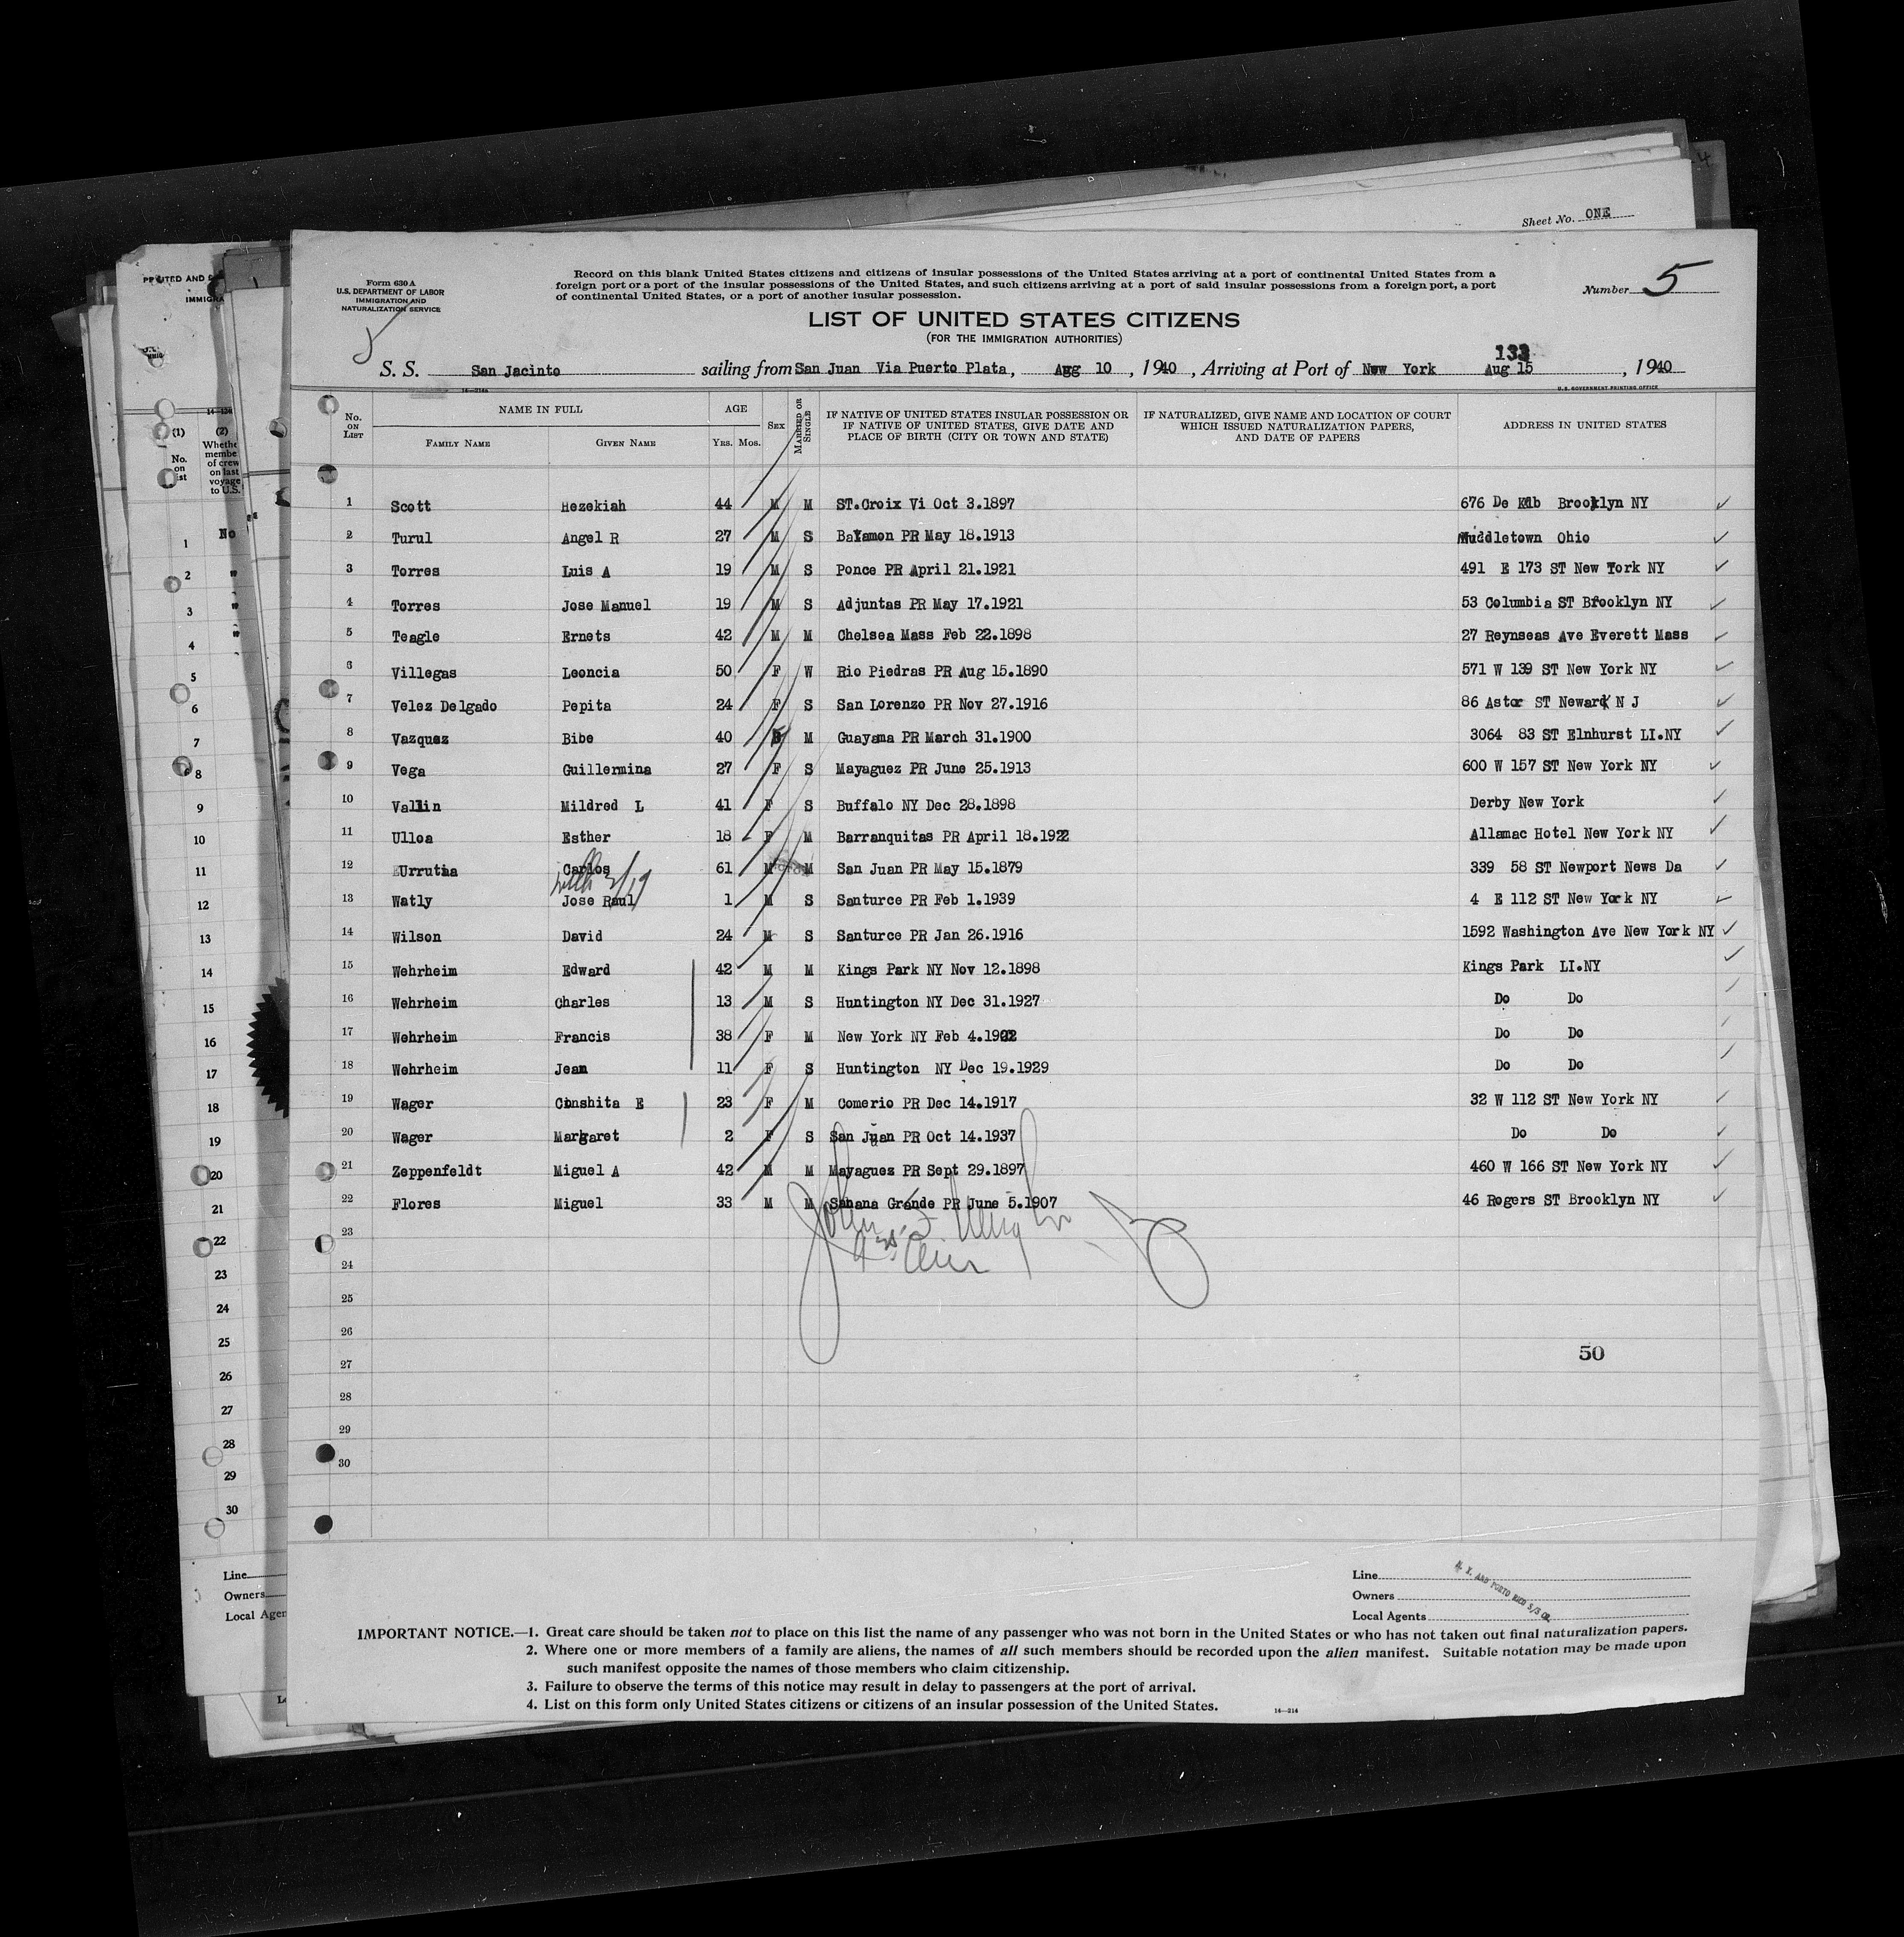 Sheet No. ONE
Form 630 A
U.S. DEPARTMENT OF LABOR
IMMIGRATION AND
NATURALIZATION SERVICE
Record on this blank United States citizens and citizens of insular possessions of the United States arriving at a port of continental United States from a
foreign port or a port of the insular possessions of the United States, and such citizens arriving at a port of said insular possessions from a foreign port, a port
of continental United States, or a port of another insular possession.
Number 5
LIST OF UNITED STATES CITIZENS
(FOR THE IMMIGRATION AUTHORITIES)
133
S. S. San Jacinto sailing from San Juan Via Puerto Plata, Aug 10, 1940, Arriving at Port of New York Aug 15, 1940
14—214a
U. S. GOVERNMENT PRINTING OFFICE
No. ON LIST
NAME IN FULL
FAMILY NAME GIVEN NAME
AGE
YRS. MOS.
SEX
MARRIED OR SINGLE
IF NATIVE OF UNITED STATES INSULAR POSSESSION OR
IF NATIVE OF UNITED STATES, GIVE DATE AND
PLACE OF BIRTH (CITY OR TOWN AND STATE)
IF NATURALIZED, GIVE NAME AND LOCATION OF COURT
WHICH ISSUED NATURALIZATION PAPERS,
AND DATE OF PAPERS
ADDRESS IN UNITED STATES
1 Scott Hezekiah 44 M M ST.Croix Vi Oct 3.1897 676 De Kalb Brooklyn NY
2 Turul Angel R 27 M S Bayamon PR May 18.1913 Muddletown Ohio
3 Torres Luis A 19 M S Ponce PR April 21.1921 491 E 173 ST New York NY
4 Torres Jose Manuel 19 M S Adjuntas PR May 17.1921 53 Columbia ST Brooklyn NY
5 Teagle Ernets 42 M M Chelsea Mass Feb 22.1898 27 Reynseas Ave Everett Mass
6 Villegas Leoncia 50 F W Rio Piedras PR Aug 15.1890 571 W 139 ST New York NY
7 Velez Delgado Pepita 24 F S San Lorenzo PR Nov 27.1916 86 Astor ST Newark N J
8 Vazquez Bibe 40 M Guayama PR March 31.1900 3064 83 ST Elnhurst LI.NY
9 Vega Guillermina 27 F S Mayaguez PR June 25.1913 600 W 157 ST New York NY
10 Vallin Mildred L 41 F S Buffalo NY Dec 28.1898 Derby New York
11 Ulloa Esther 18 F M Barranquitas PR April 18.1922 Allamac Hotel New York NY
12 Urrutia Carlos 61 M M San Juan PR May 15.1879 339 58 ST Newport News Da
13 Watly Jose Raul 1 M S Santurce PR Feb 1.1939 4 E 112 ST New York NY
14 Wilson David 24 M S Santurce PR Jan 26.1916 1592 Washington Ave New York NY
15 Wehrheim Edward 42 M M Kings Park NY Nov 12.1898 Kings Park LI.NY
16 Wehrheim Charles 13 M S Huntington NY Dec 31.1927 Do Do
17 Wehrheim Francis 38 F M New York NY Feb 4.1902 Do Do
18 Wehrheim Jean 11 F S Huntington NY Dec 19.1929 Do Do
19 Wager Cinshita E 23 F M Comerio PR Dec 14.1917 32 W 112 ST New York NY
20 Wager Margaret 2 F S San Juan PR Oct 14.1937 Do Do
21 Zeppenfeldt Miguel A 42 M M Mayaguez PR Sept 29.1897 460 W 166 ST New York NY
22 Flores Miguel 33 M M Sabana Grande PR June 5.1907 46 Rogers ST Brooklyn NY
23
24
25
26
27
28
29
30
50
Line
Owners
Local Agents
N. Y. AND PORTO RICO S/S Co.
IMPORTANT NOTICE.—1. Great care should be taken not to place on this list the name of any passenger who was not born in the United States or who has not taken out final naturalization papers.
2. Where one or more members of a family are aliens, the names of all such members should be recorded upon the alien manifest. Suitable notation may be made upon
such manifest opposite the names of those members who claim citizenship.
3. Failure to observe the terms of this notice may result in delay to passengers at the port of arrival.
4. List on this form only United States citizens or citizens of an insular possession of the United States.
14—214
(1) (2)
No.
on
Whethe
membe
of crew
on last
voyage
to U.S.
No
1
2
3
4
5
6
7
8
9
10
11
12
13
14
15
16
17
18
19
20
21
22
23
24
25
26
27
28
29
30
Line
Owners
Local Agen